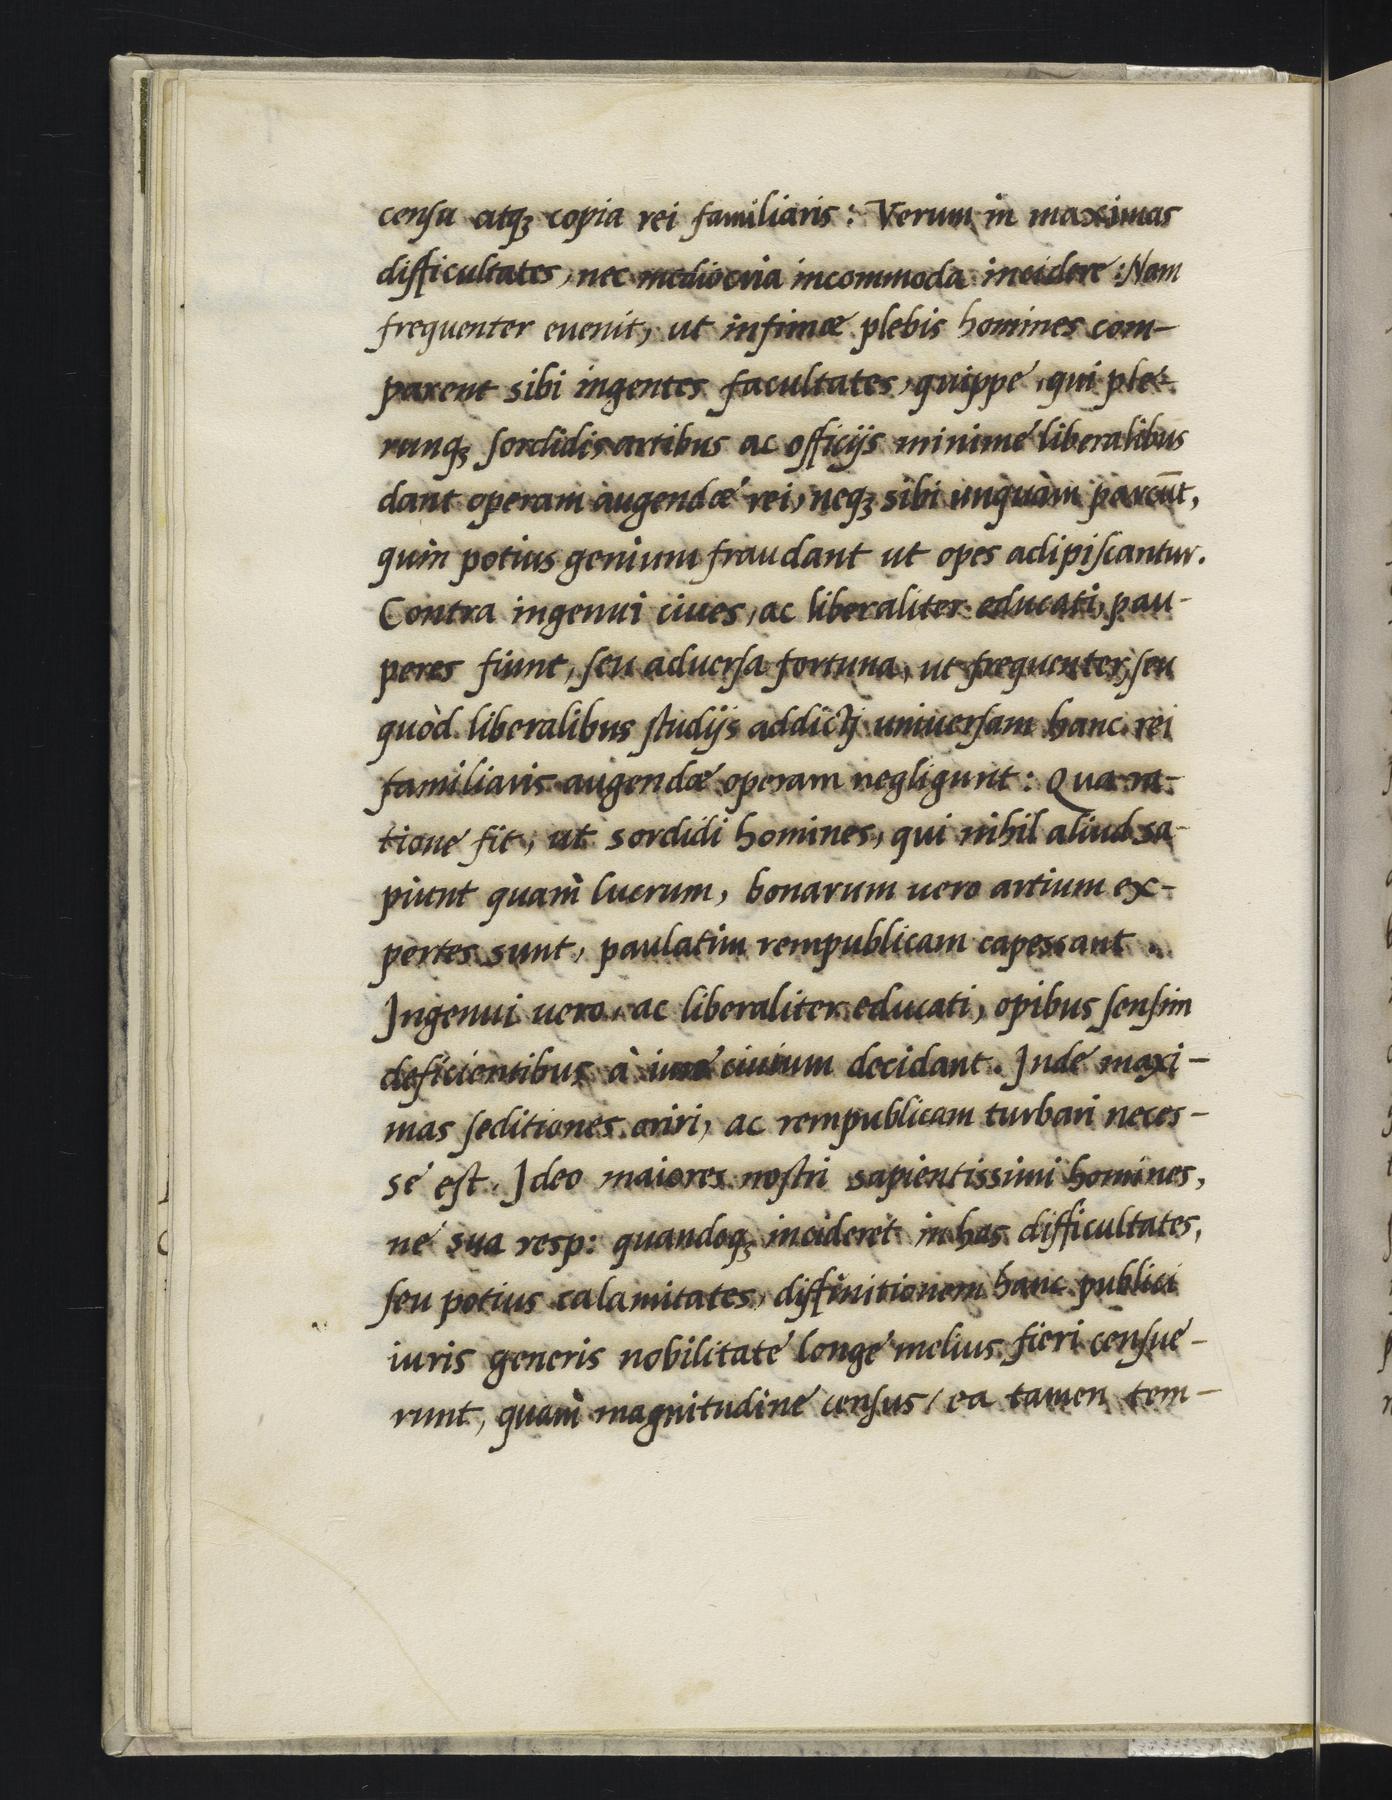 censu atqꝫ copia rei familiaris: Verum in maximas
difficultates, nec mediocria incommoda incidere: Nam
frequenter euenit, ut infimæ plebis homines com-
parent sibi ingentes facultates, quippe, qui ple-
runqꝫ ſordidis artibus ac officijs minimé liberalibus
dant operam augendæ rei, neqꝫ sibi unquàm parcūt,
quin potius genium fraudant ut opes adipiſcantur.
Contra ingenui ciues, ac liberaliter educati, pau-
peres fiunt, ſeu aduerſa fortuna, ut frequenter, ſeu
quòd liberalibus ſtudijs addicti uniuerſam hanc rei
familiaris augendæ operam negligunt: Qua ra-
tione fit, ut sordidi homines, qui nihil aliud sa-
piunt quam̀ lucrum, bonarum uero artium ex-
pertes sunt, paulatim rempublicam capessant.
Ingenui uero, ac liberaliter educati, opibus ſenſim
deficientibus à iure ciuium decidant. Inde maxi-
mas ſeditiones oriri, ac rempublicam turbari neces-
se eſt. Ideo maiores noſtri sapientissimi homines,
ne sua resp: quandoqꝫ incideret in has difficultates,
ſeu potius calamitates, diffinitionem hanc publici
iuris generis nobilitate longé melius fieri cenſue-
runt, quam̀ magnitudine cenſus / ea tamen tem-